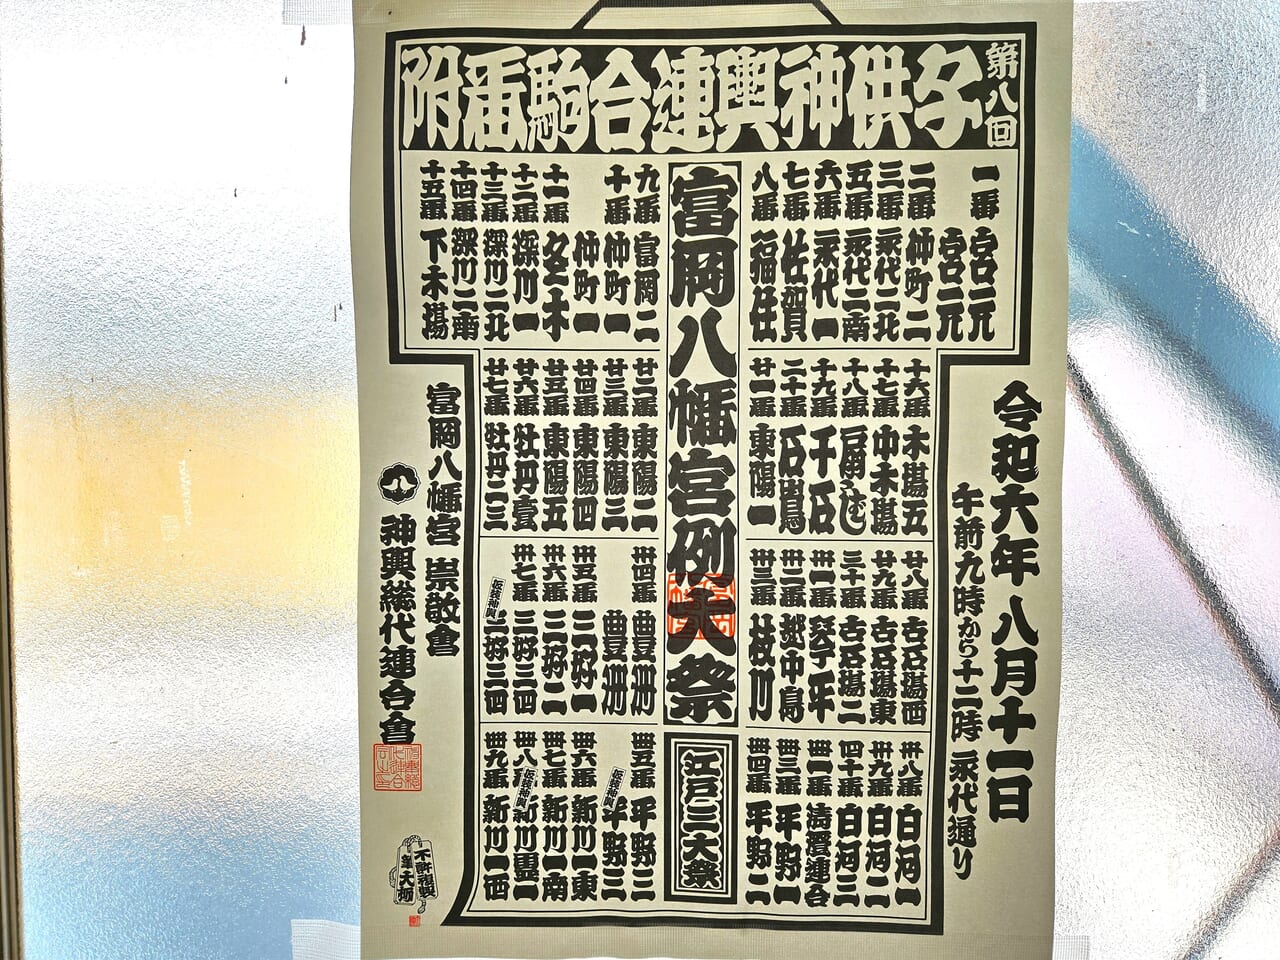 第八回
子供神輿連合駒番附
一番 宮元
宮元
二番 仲町二
三番 永代二北
五番 永代二南
六番 永代一
七番 佐賀
八番 福住
富岡八幡宮例大祭
九番 富岡二
十番 仲町一
仲町一
十一番 冬木
十二番 深川一
十三番 深川二北
十四番 深川二南
十五番 下木場
十六番 木場五
十七番 中木場
十八番 扇ばし
十九番 千石
二十番 石島
廿一番 東陽一
廿二番 東陽二
廿三番 東陽三
廿四番 東陽四
廿五番 東陽五
廿六番 牡丹壹
廿七番 牡丹二三
廿八番 古石場西
廿九番 古石場東
三十番 古石場二
卅一番 琴平
卅二番 越中島
卅三番 枝川
卅四番 豊洲
豊洲
卅五番 三好一
卅六番 三好二
卅七番 三好三四
仮装神輿 三好三四
卅八番 白河一
卅九番 白河二
四十番 白河三
卌一番 清澄連合
卌三番 平野一
卌四番 平野二
江戸三大祭
卌五番 平野三
仮装神輿 平野三
卌六番 新川一東
卌七番 新川一南
卌八番
仮装神輿
卌九番 新川一西
令和六年八月十一日
午前九時から十二時 永代通り
富岡八幡宮 崇敬會
神輿総代連合會
不許複製